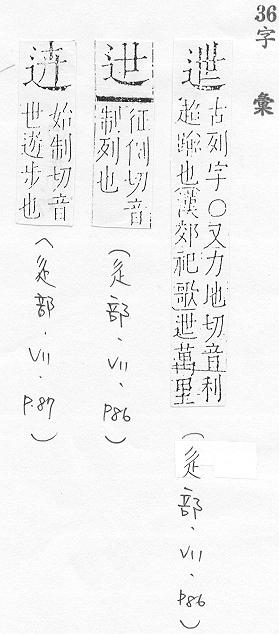 36 字彙
迣
古列字○又力地切音利
超踰也漢郊祀歌迣萬里
(辵部.VII.P86)
迣
征例切音
制列也
(辵部.VII.P86)
始制切音
世遊步也
(辵部.VII.P.87)